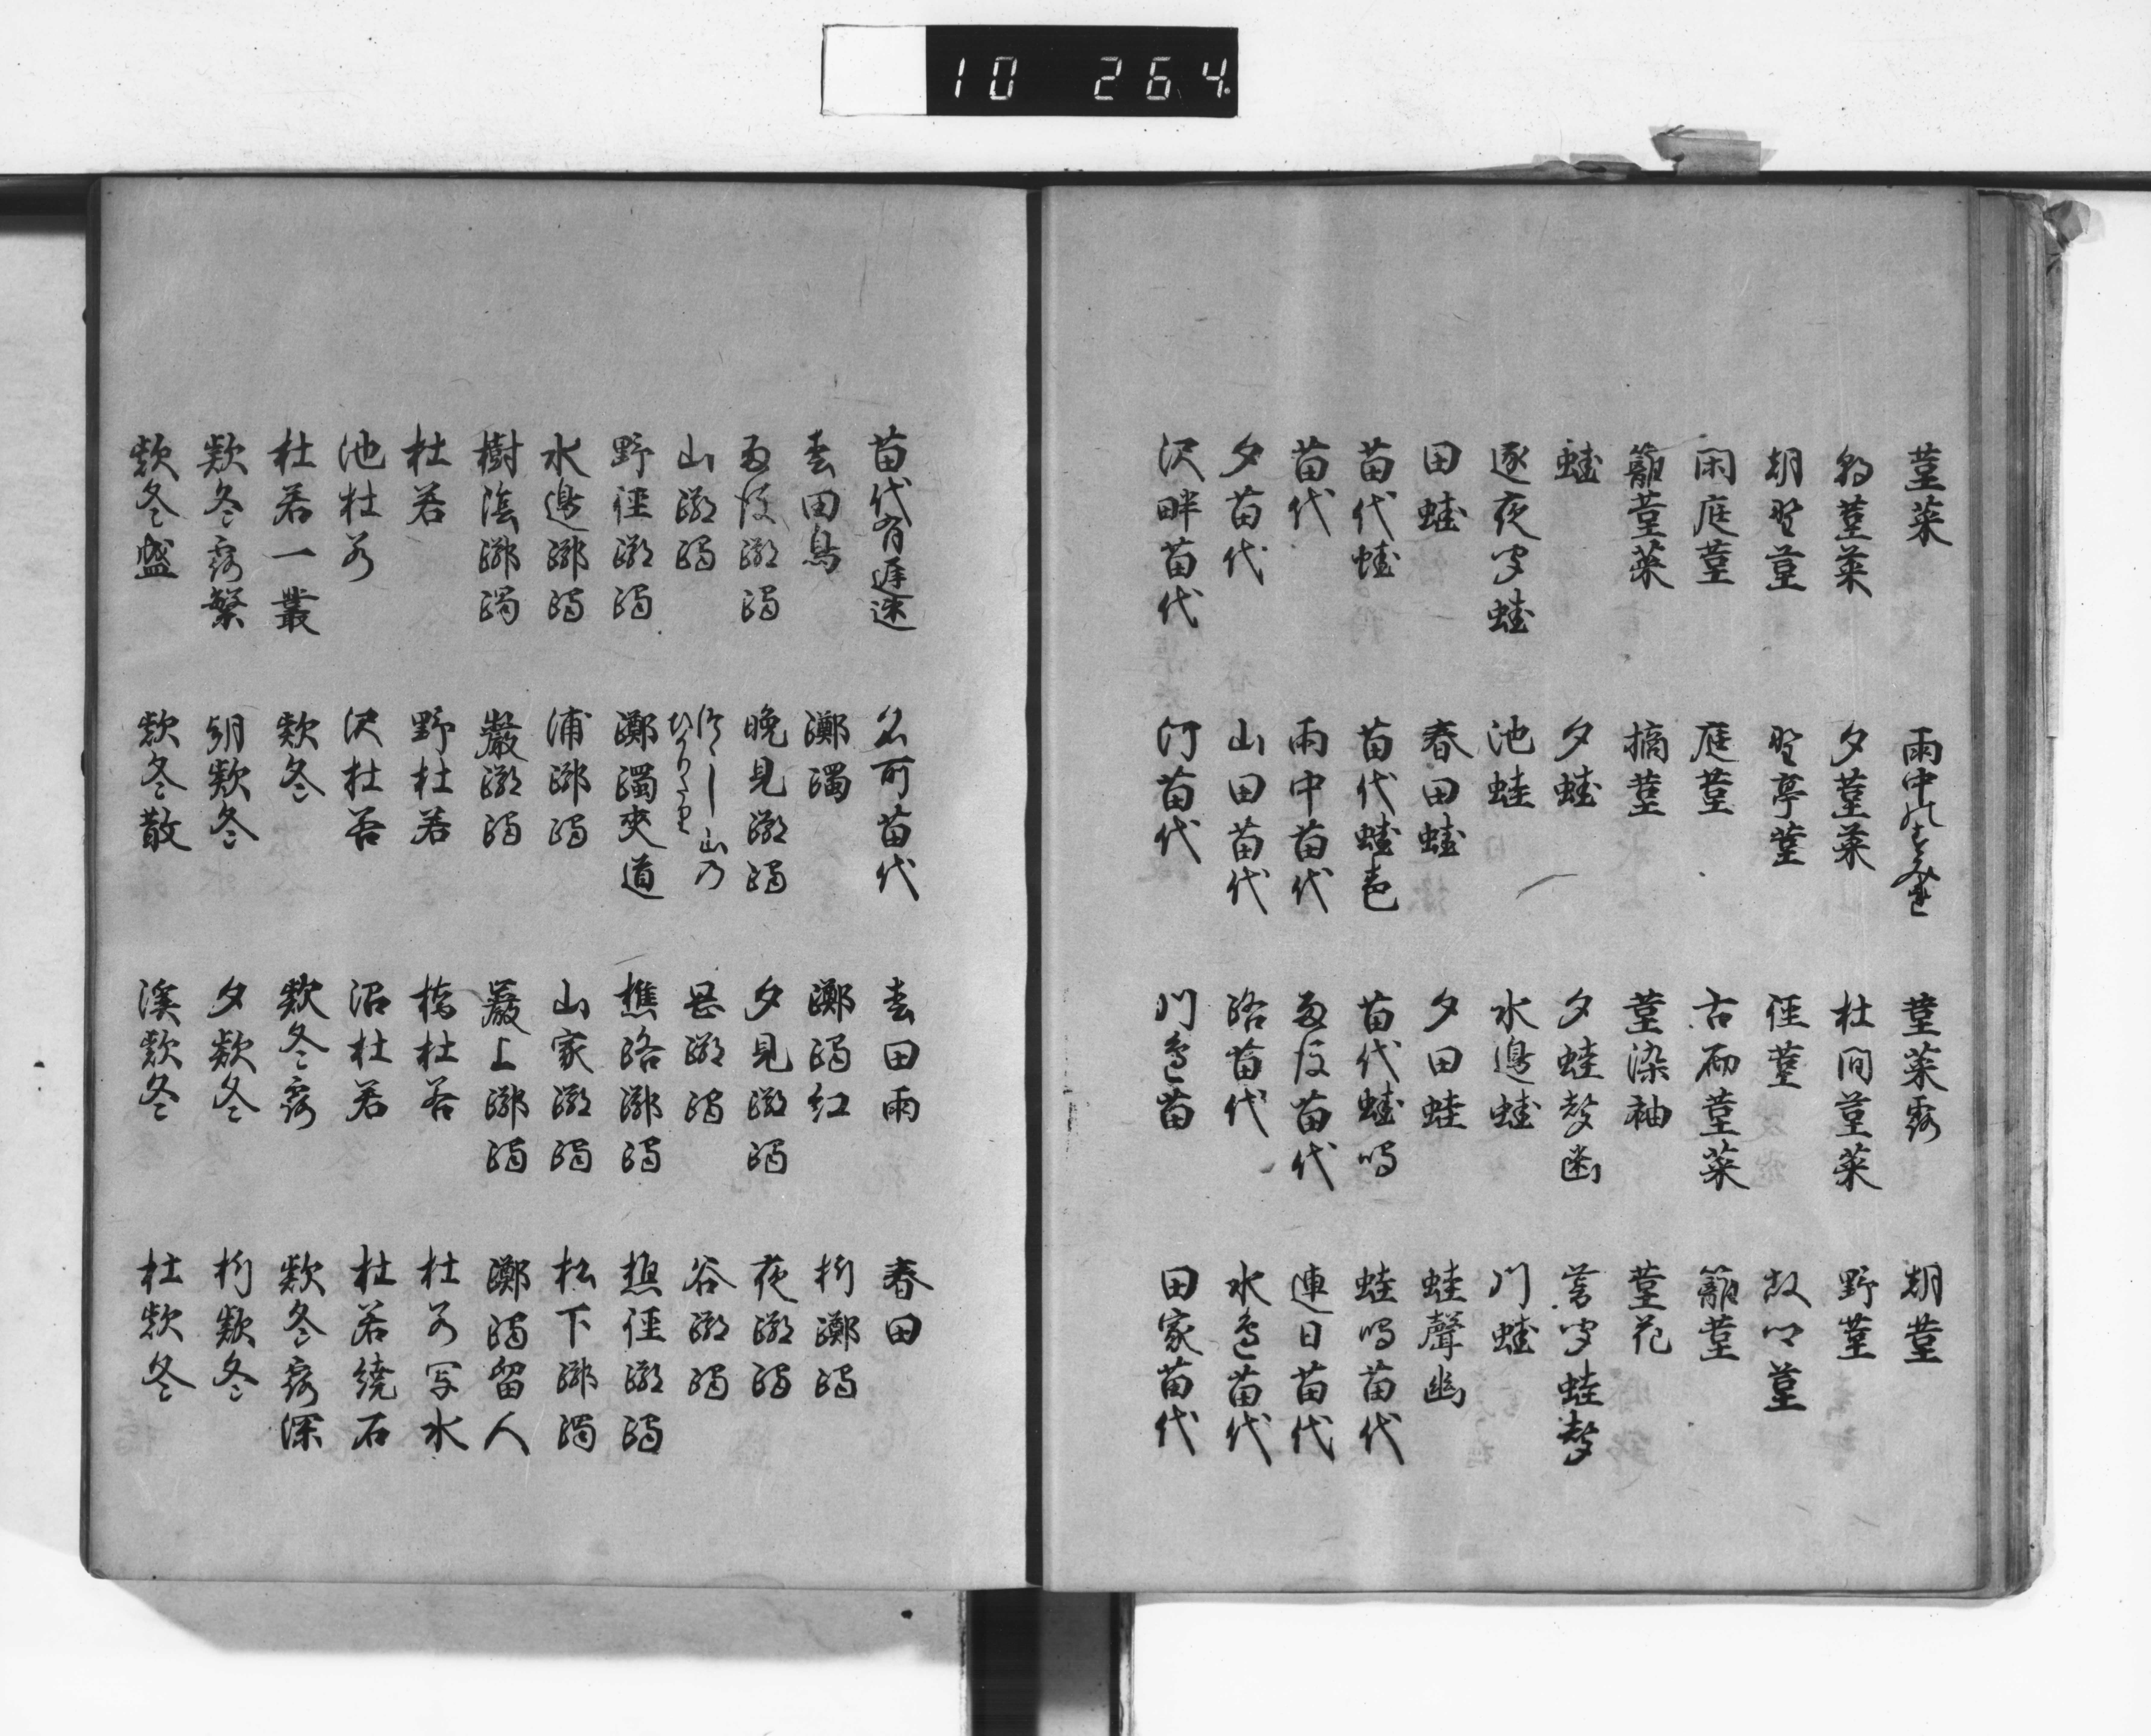 10 264
菫菜　雨中のすみれ　菫菜露　朝菫
朝菫菜　夕菫菜　杜間菫菜　野菫
朝野菫　野亭菫　径菫　故郷菫
閑庭菫　庭菫　古砌菫菜　籬菫
籬菫菜　摘菫　菫染袖　菫花
蛙　夕蛙　夕蛙聲幽　暮聞蛙聲
逐夜聞蛙　池蛙　水邊蛙　川蛙
田蛙　春田蛙　夕田蛙　蛙聲幽
苗代蛙　苗代蛙色　苗代蛙鳴　蛙鳴苗代
苗代　雨中苗代　雨後苗代　連日苗代
夕苗代　山田苗代　路苗代　水邊苗代
沢畔苗代　河苗代　川邊苗　田家苗代
苗代有遅速　名所苗代　春田雨　春田
春田鳥　躑躅　躑躅紅　折躑躅
雨後躑躅　晩見躑躅　夕見躑躅　夜躑躅
山躑躅　つゝし山の　ひかりたり　岡躑躅　谷躑躅
野径躑躅　躑躅夾道　樵路躑躅　樵径躑躅
水邊躑躅　浦躑躅　山家躑躅　松下躑躅
樹陰躑躅　巌躑躅　巌上躑躅　躑躅留人
杜若　野杜若　橋杜若　杜若写水
池杜若　沢杜若　沼杜若　杜若繞石
杜若一叢　款冬　款冬露　款冬露深
款冬露繁　朝款冬　夕款冬　折款冬
款冬盛　款冬散　溪款冬　杜款冬